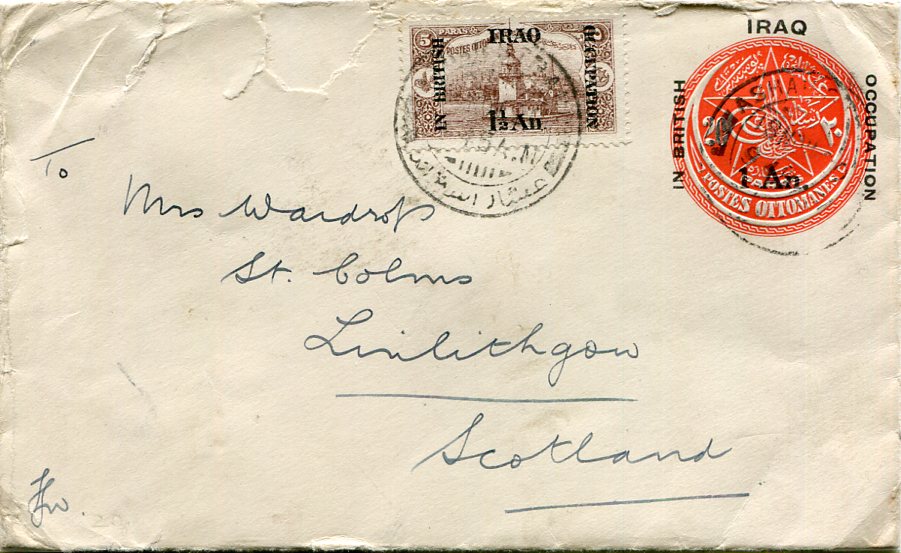 IRAQ
IN BRITISH
OCCUPATION
5 PARAS 5
POSTES OTTOMANES
IRAQ
IN BRITISH
OCCUPATION
1½ An
20
٢٠
1 An.
POSTES OTTOMANES
ASHAR
عشار
To
Mrs Wardrop
St. Colms
Linlithgow
Scotland